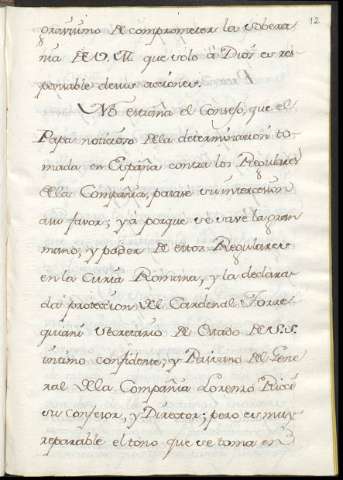 12
gravissimo de comprometer la sobera-
nia de V.M. que solo à Dios es res-
ponsable de sus acciones.
No estraña el Consejo, que el
Papa noticioso de la determinacion to-
mada en España contra los Regulares
de la Compañia, pasase su intercesion
a su favor; yá porque se save la gran
mano, y poder de estos Regulares
en la Curia Romana, y la declara-
da proteccion del Cardenal Torre-
giani Secretario de Estado de S.S.
intimo confidente, y Paisano del Gene-
ral de la Compañia Lorenzo Ricci
su Confesor, y Director; pero es muy
reparable el tono que se toma en